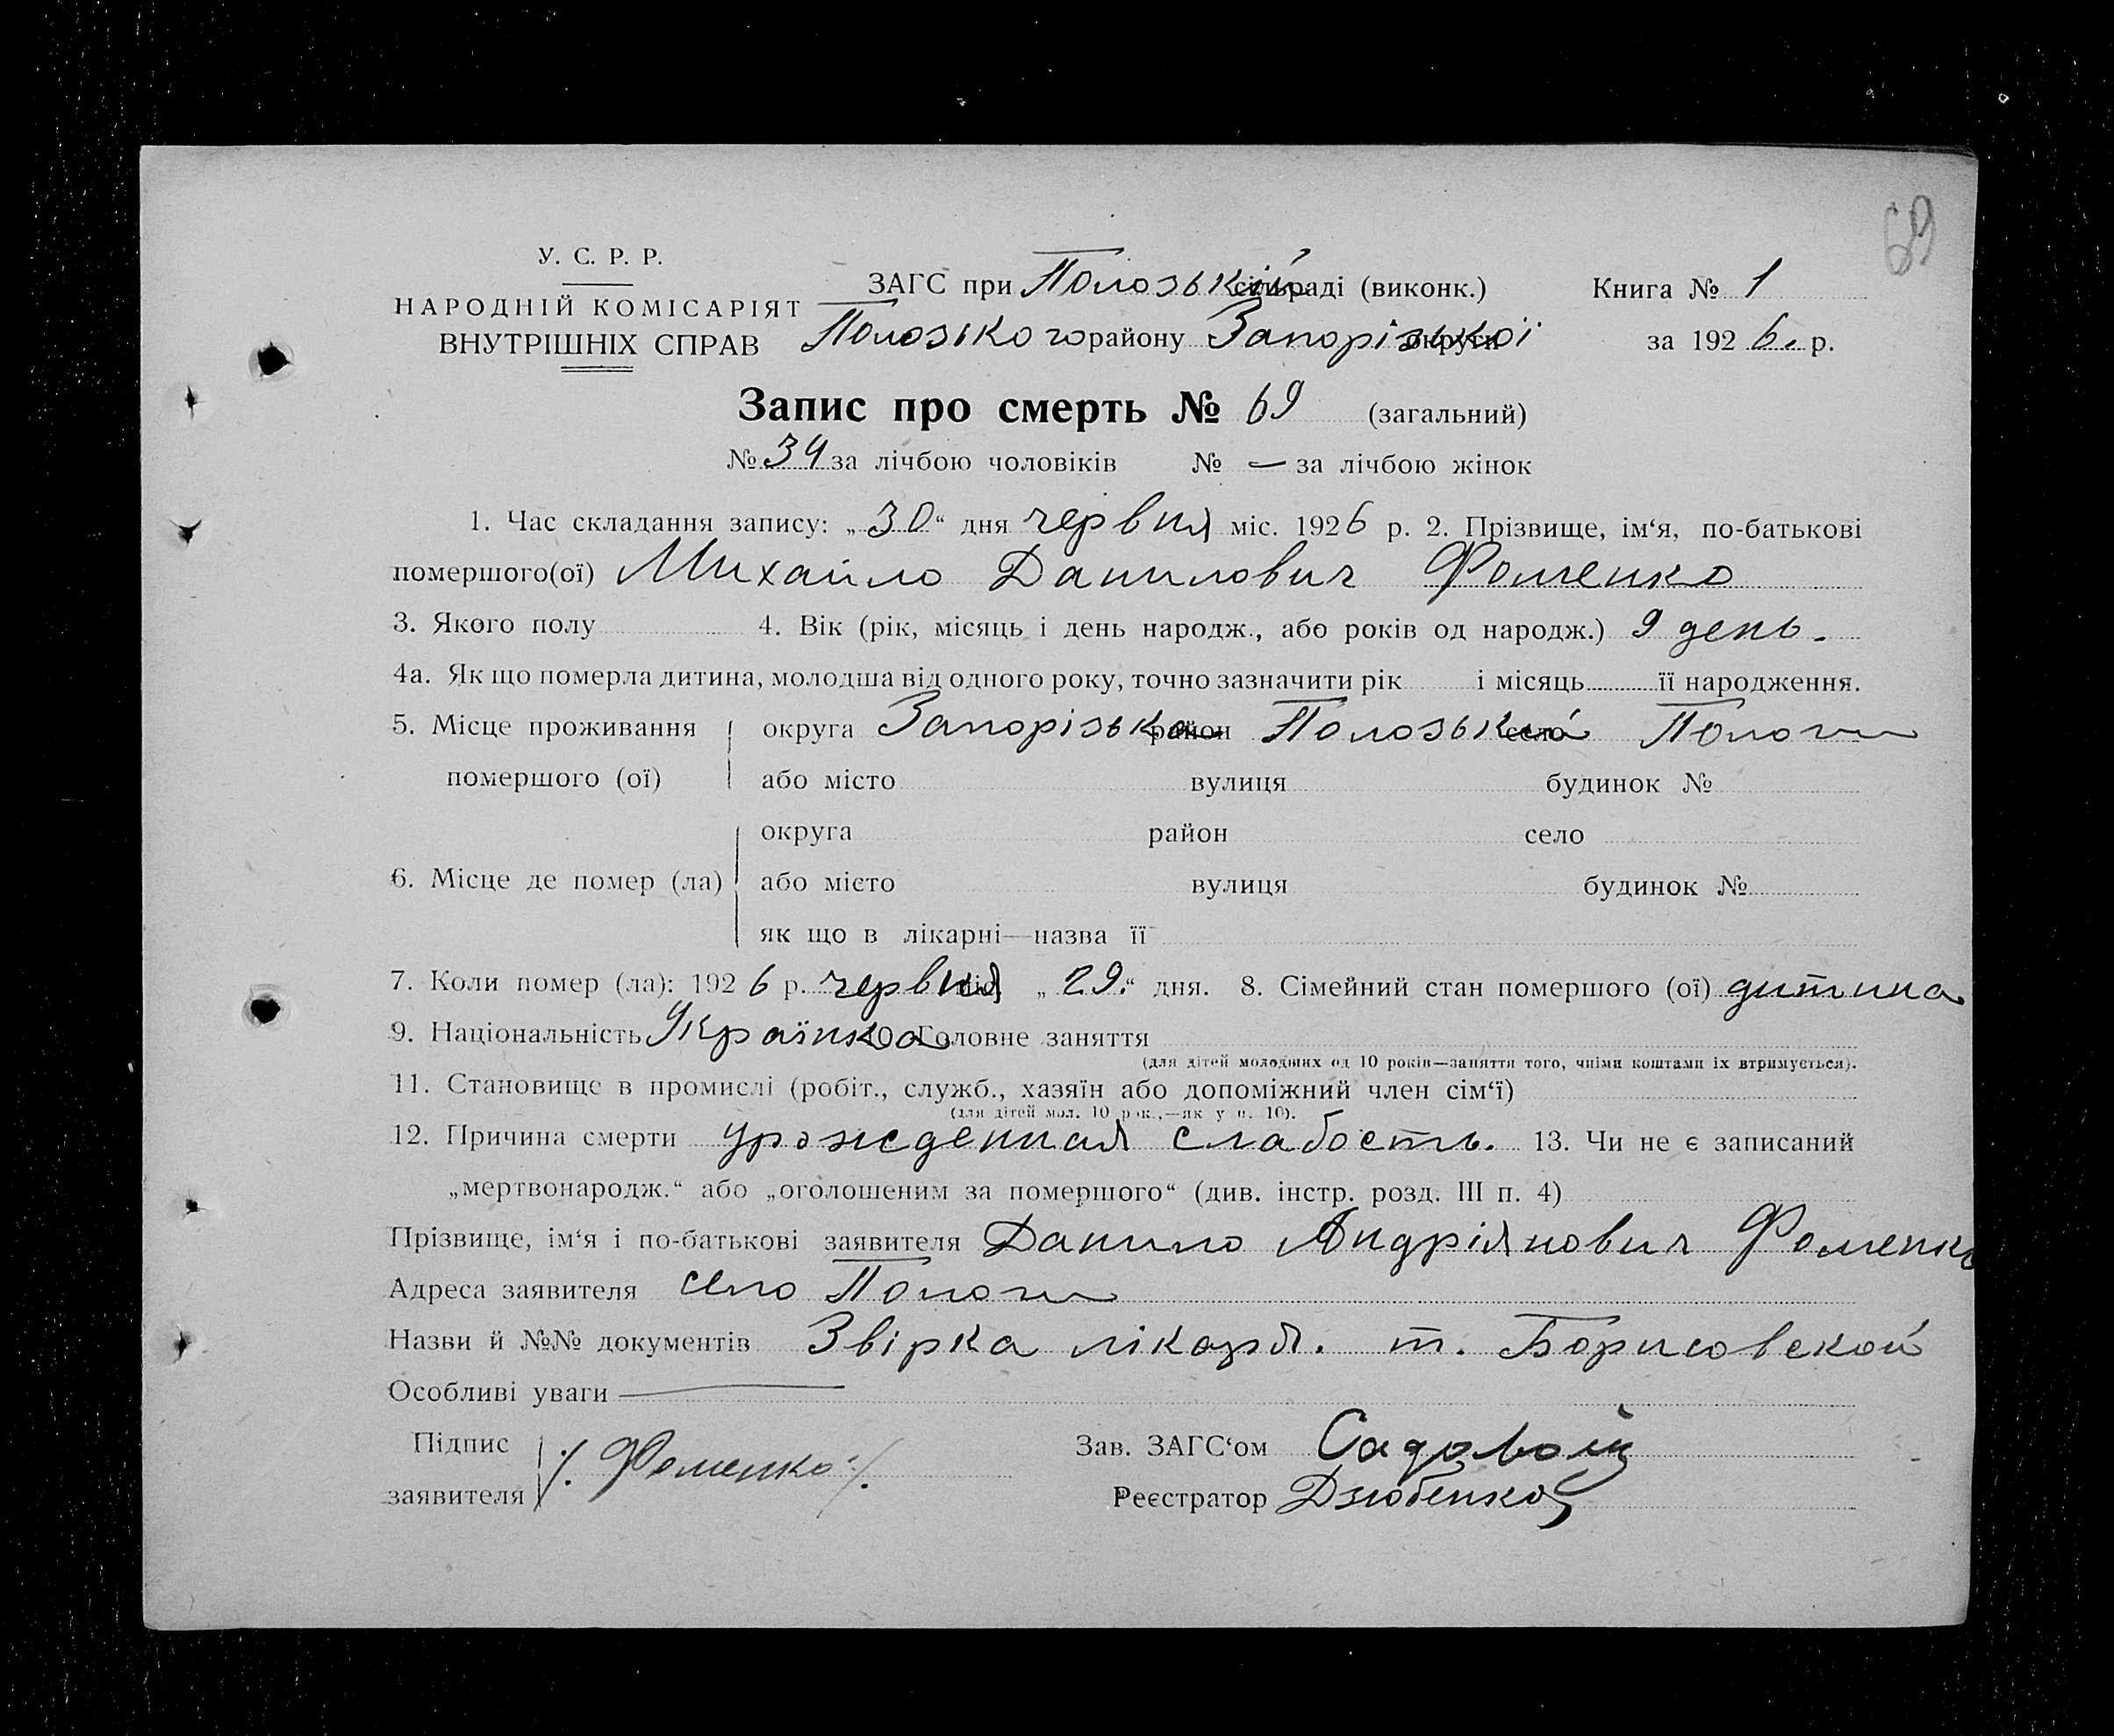 69
У. С. Р. Р.
НАРОДНІЙ КОМІСАРІЯТ
ВНУТРІШНІХ СПРАВ
ЗАГС при Полозький сільраді (виконк.)
Полозького району Запорізької округи
Книга № 1
за 1926. р.
Запис про смерть № 69 (загальний)
№ 34 за лічбою чоловіків № — за лічбою жінок
1. Час складання запису: „30“ дня червня міс. 1926 р. 2. Прізвище, ім‘я, по-батькові
помершого(ої) Михайло Данилович Фоменко
3. Якого полу 4. Вік (рік, місяць і день народж., або років од народж.) 9 день.
4а. Як що померла дитина, молодша від одного року, точно зазначити рік і місяць її народження.
5. Місце проживання округа Запорізька район Полозький село Пологи
помершого (ої) або місто вулиця будинок №
округа район село
6. Місце де помер (ла) або місто вулиця будинок №
як що в лікарні—назва її
7. Коли помер (ла): 1926 р. червня міс. „29.“ дня. 8. Сімейний стан помершого (ої) дитина
9. Національність Українка 10. Головне заняття
(для дітей молодших од 10 років—заняття того, чиїми коштами їх втримується).
11. Становище в промислі (робіт., служб., хазяїн або допоміжний член сім‘ї)
(для дітей мол. 10 рок.,—як у п. 10).
12. Причина смерти урожденная слабость. 13. Чи не є записаний
„мертвонародж.“ або „оголошеним за помершого“ (див. інстр. розд. III п. 4)
Прізвище, ім‘я і по-батькові заявителя Данило Андріянович Фоменко
Адреса заявителя село Пологи
Назви й №№ документів Звірка лікаря. т. Борисовской
Особливі уваги —
Підпис заявителя /. Фоменко ./.
Зав. ЗАГС‘ом Садовой
Реєстратор Дзюбенко